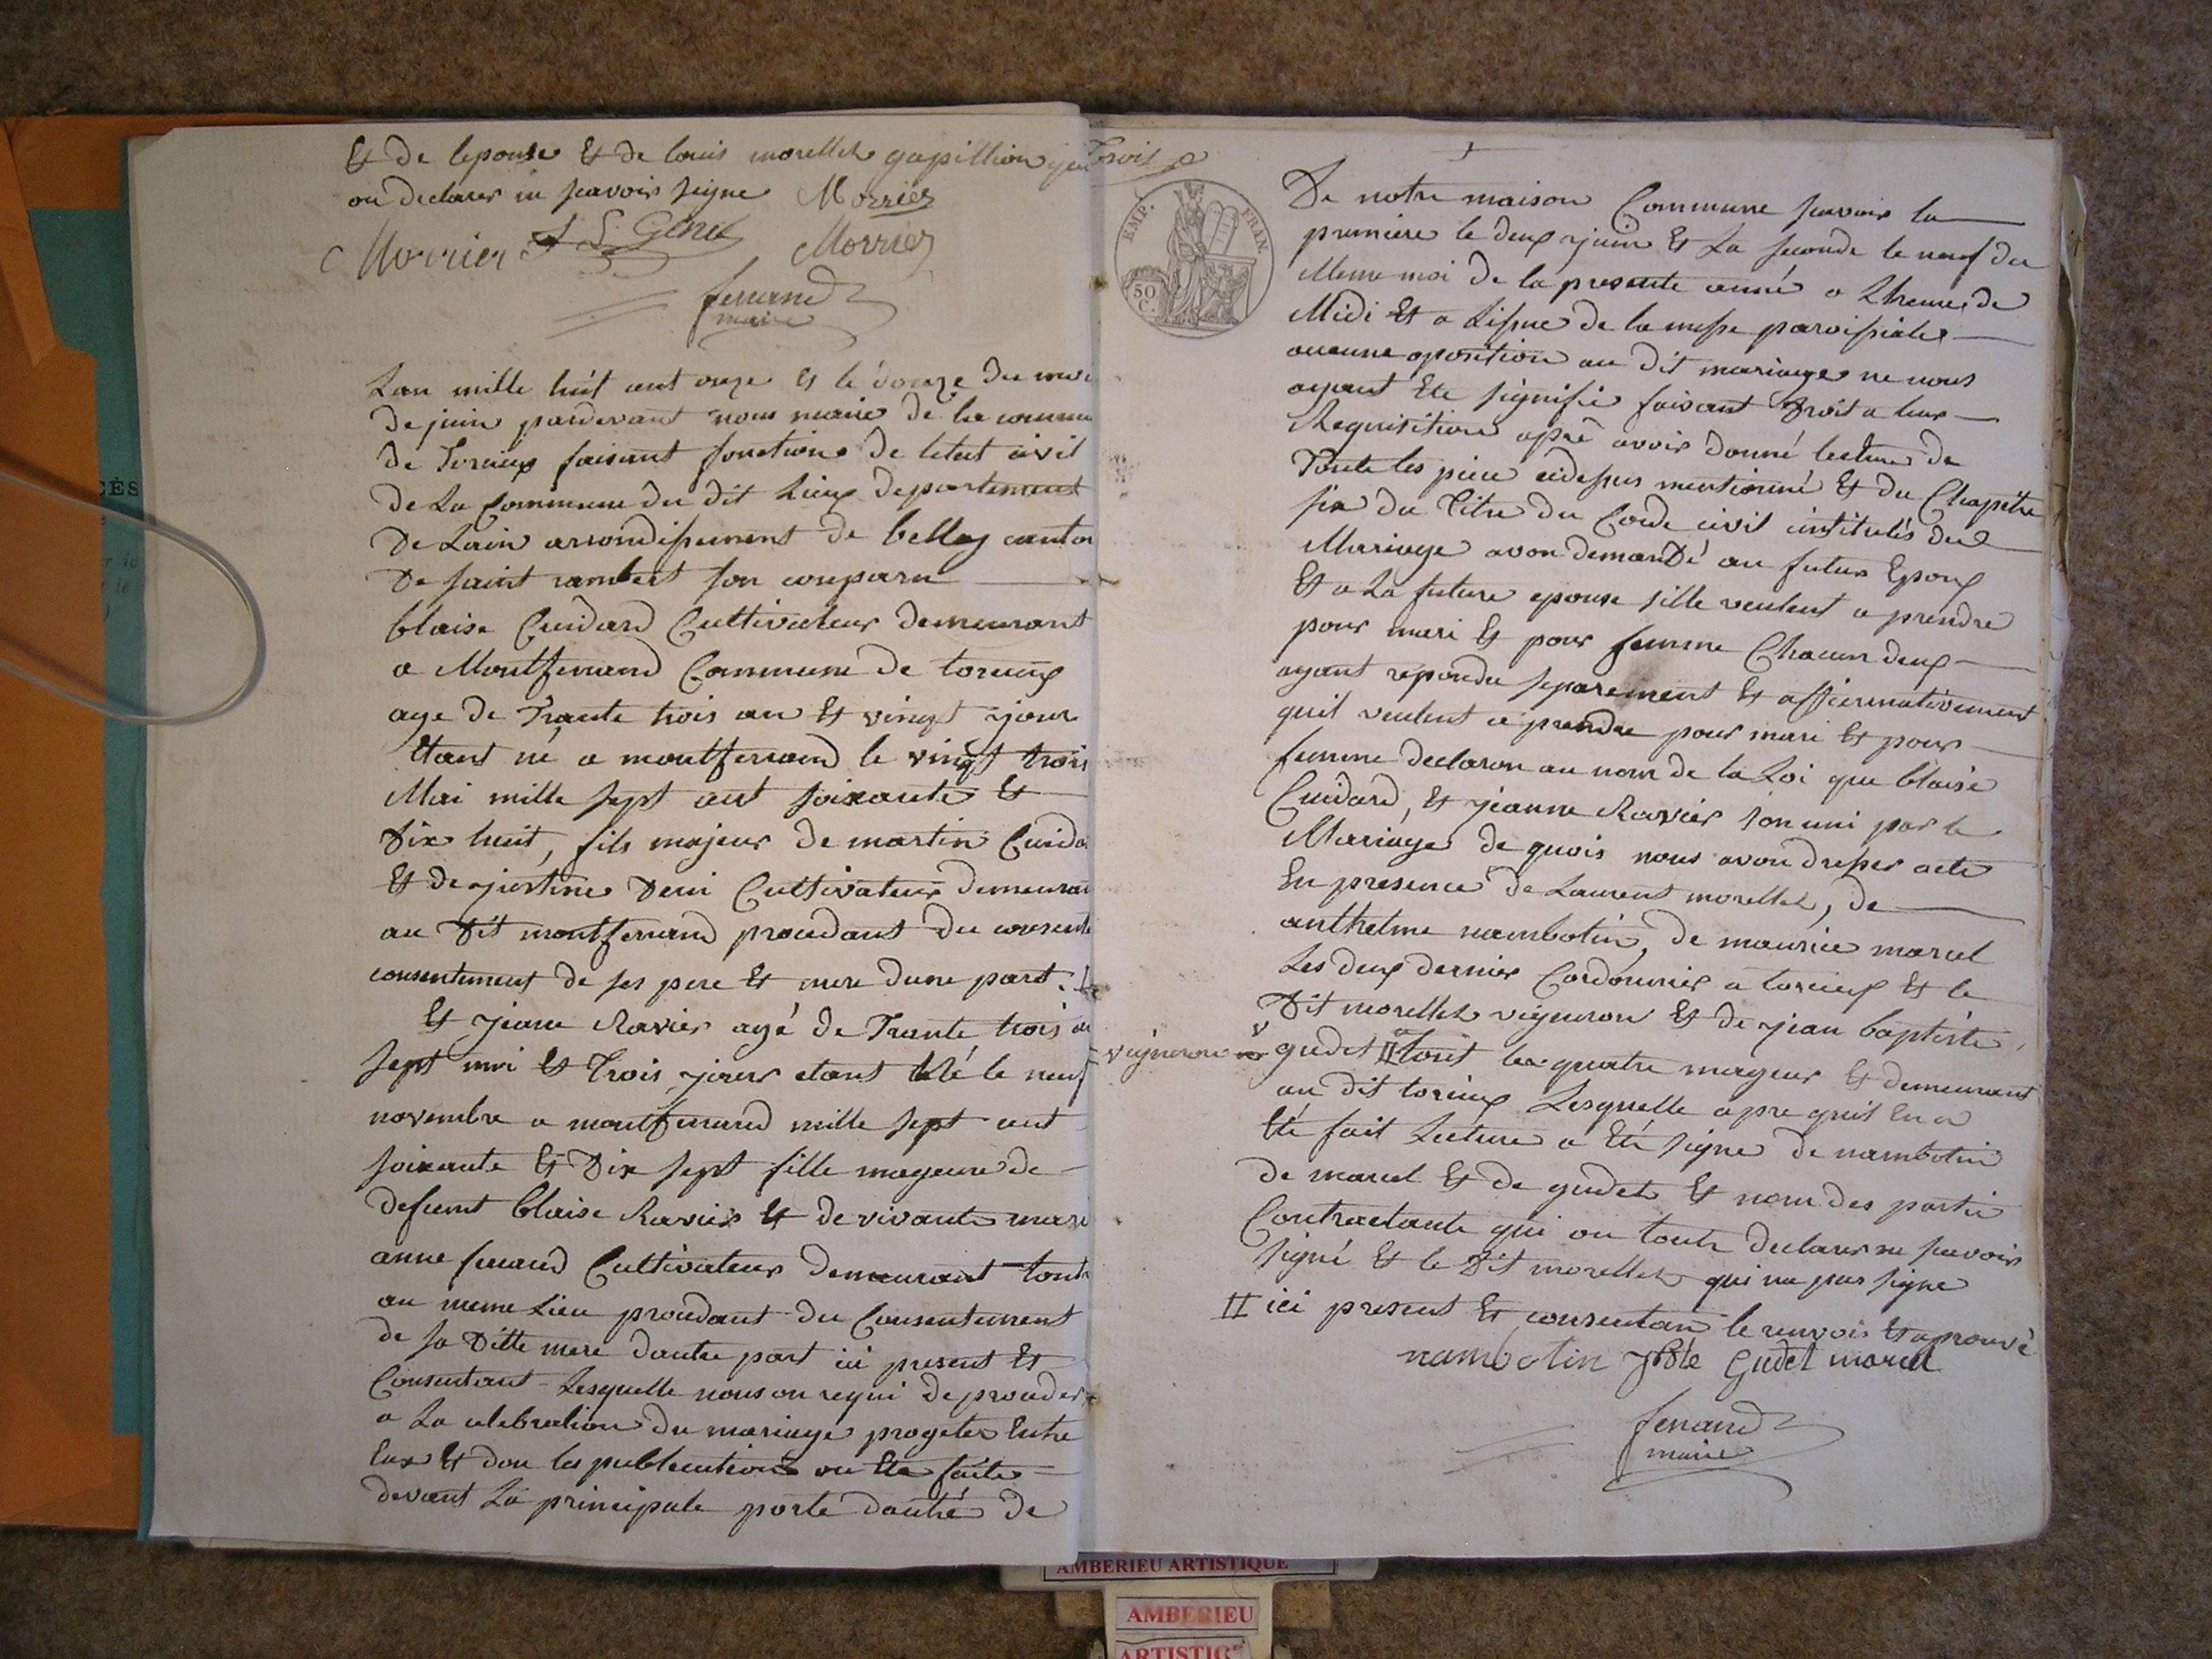 Et de lepouse Et de louis morellet
on declarer ne scavoir signe Morrier
Morrier Morrier
ferrand
maire
Lan mille huit cent onze Et le douze du moi
de juin pardevant nous maire de la commu
de Torcieux faisant fonction de letat civil
de La Commune du dit Lieux departement
de Lain arrondissement de belley canton
de saint rambert son comparu
blaise Cuidard Cultivateur demeurant
a Montferrand Commune de torcieux
age de Trante trois an Et vingt jour
Etant né a montferrand le vingt trois
Mai mille sept cent soixante Et
dix huit, fils majeur de martin Cuida
Et de justine Cultivateur demeurant
au dit montferrand procedant du consente
consentement de ses pere Et mere dune part.
Et jeanne Ravier agé de Trante trois an
sept moi Et Trois jour etant né le neuf
novembre a montferrand mille sept cent
soixante Et dix sept fille mageure de
defunt blaise Ravier Et de vivante mari
anne ferrand Cultivateur demeurant tout
au meme Lieu procedant du Consentement
de sa ditte mere dautre part ici present Et
Consentant Lesquelle nous on requi de proceder
a La celebration du mariage progeter Entre
Eux Et don les publication on Eté faite
devant La principale porte dantré de
Trois
EMP. FRAN.
50 C.
De notre maison Commune scavoir la
premiere le deux juin Et La seconde le neuf du
Meme moi de la presente anné a Lheure de
Midi Et a Lissue de la messe paroissiale
aucune oposition au dit mariage ne nous
ayant Ete signifié faisant droit a leur
Requisition aprè avoir donné lecture de
Toute les piece cidessus mentionné Et du Chapitre
six du Titre du Code civil intitulés du
Mariage avon demandé au futur Epoux
Et a La future epouse sille veulent ce prendre
pour mari Et pour femme Chacun deux
ayant repondu separement Et affirmativement
quil veulent ce prendre pour mari Et pour
femme declaron au nom de la Loi que blaise
Cuidard, Et jeanne Ravier son uni par le
Mariage de quois nous avon dresser acte
En presence de Laurent morellet, de
anthelme nambotin, de maurice marcel
Les deux dernier Cordonnier a torcieux Et le
dit morellet vigneron Et de jean baptiste
vigneron gudet II tout les quatre mageur Et demeurant
au dit torcieux Lesquelle apre quil En a
Eté fait Lecture a Eté signe de nambotin
de marcel Et de gudet Et non des partie
Contractante qui on toute declarer ne scavoir
signé Et le dit morellet qui na pas signe
II ici present Et consentan le renvois Et aprouvé
nambotin Gudet marcel
ferrand
maire
AMBERIEU ARTISTIQUE
AMBERIEU